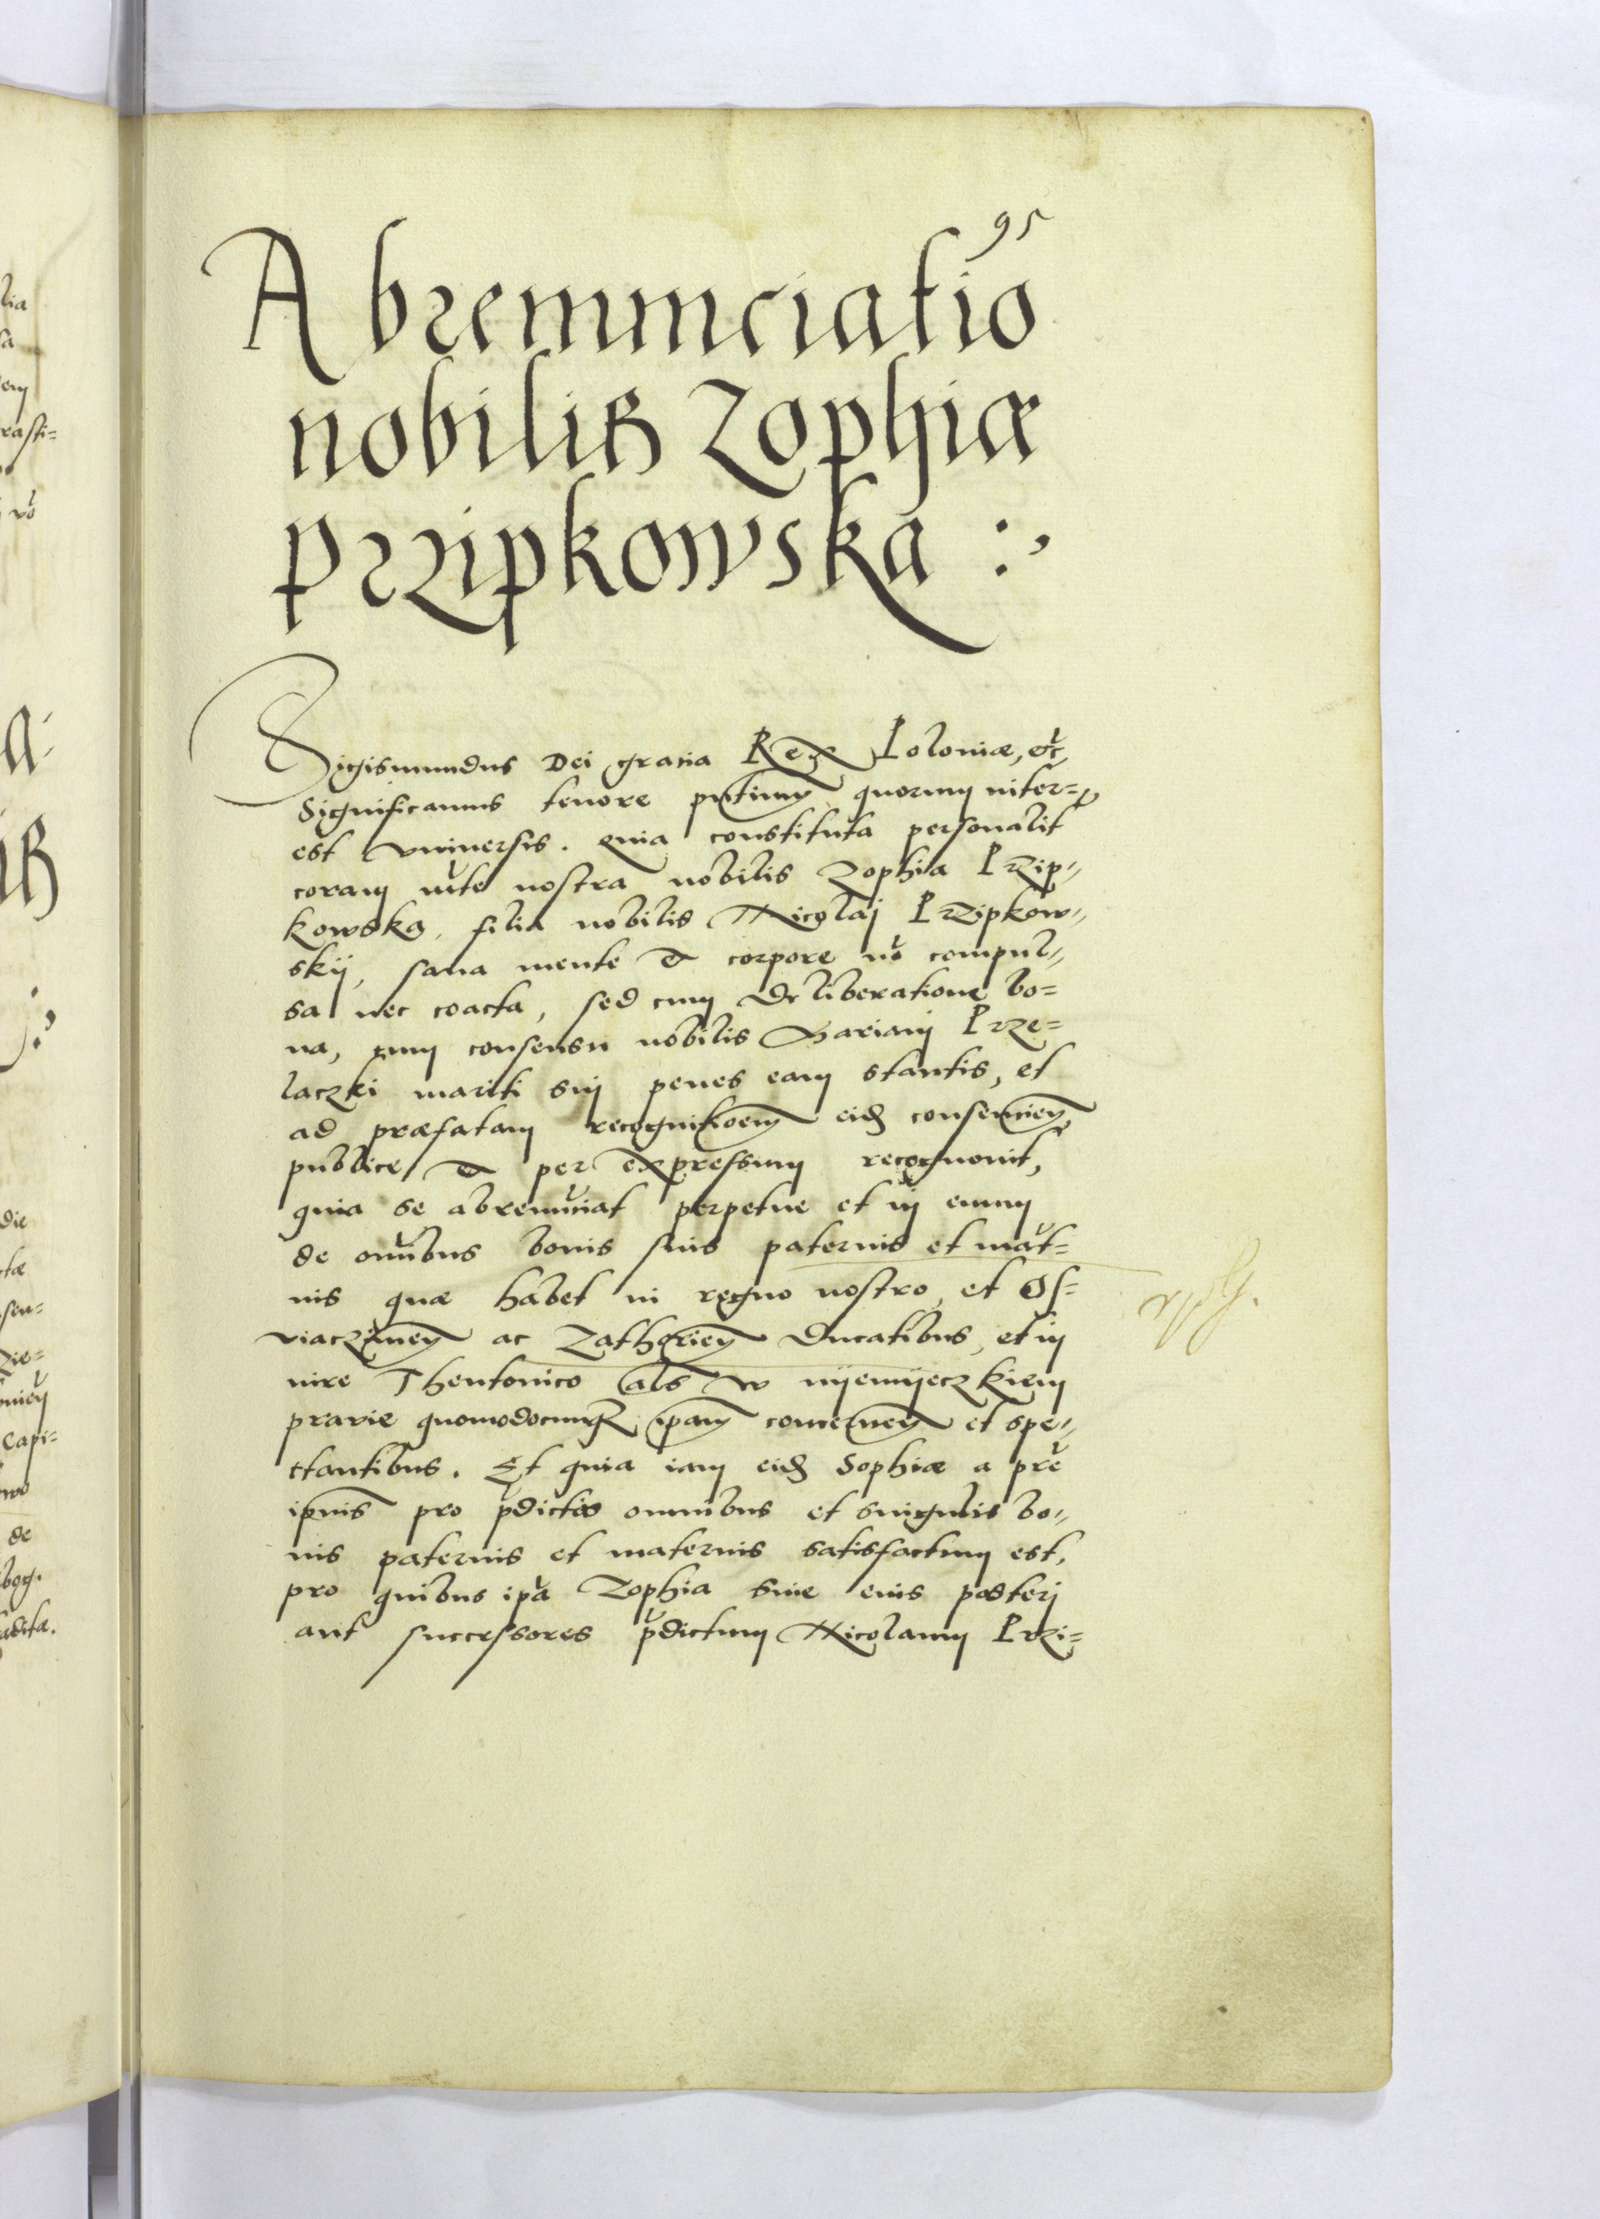 95
Abrenunciatio
nobilis Zophiæ
Przipkowska :,
Sigismundus Dei gratia Rex Poloniæ, etc,
Significamus tenore pntium quorum inter=
est vniversis. Quia constituta personalit
coram mte nostra nobilis Zophia Przip=
kowska, filia nobilis Nicolaj Przipkow=
skij, sana mente et corpore no compul=
sa nec coacta, sed cum deliberatione bo=
na, cum consensu nobilis Mariani Prze=
laczki mariti sui penes eam stantis, et
ad præfatam recognitioem eid consencien
publice et per expressum recognovit,
quia se abrenuciat perpetue et in euum
de omibus bonis suis paternis et mat=
nis quæ habet in regno nostro, et Os=
viaczimen ac Zathorien Ducatibus, et in
iure Theutonico als w nijemijeczkiem
pravie quomodocunqz ipam concernen et spe=
ctantibus. Et quia iam eid Sophiæ a pre
ipius pro pdictis omnibus et singulis bo=
nis paternis et maternis satisfactum est,
pro quibus ipa Zophia siue eius posterj
aut successores pdictum Nicolaum Przi=